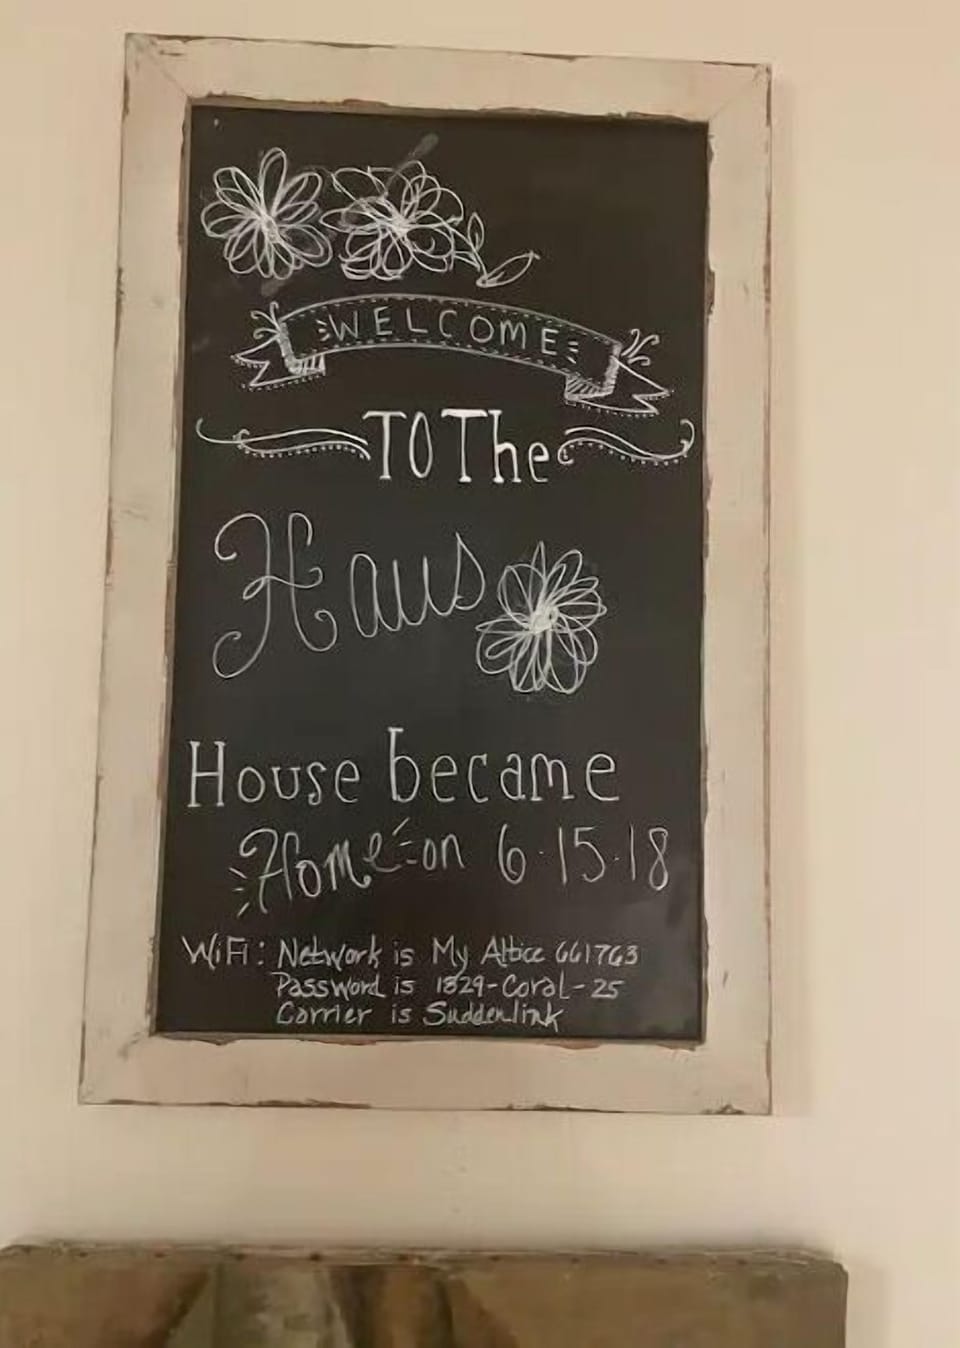 WELCOME
TO The
Haus
House became
Home on 6.15.18
WiFi: Network is My Altice 661763
Password is 1829-Coral-25
Carrier is Suddenlink